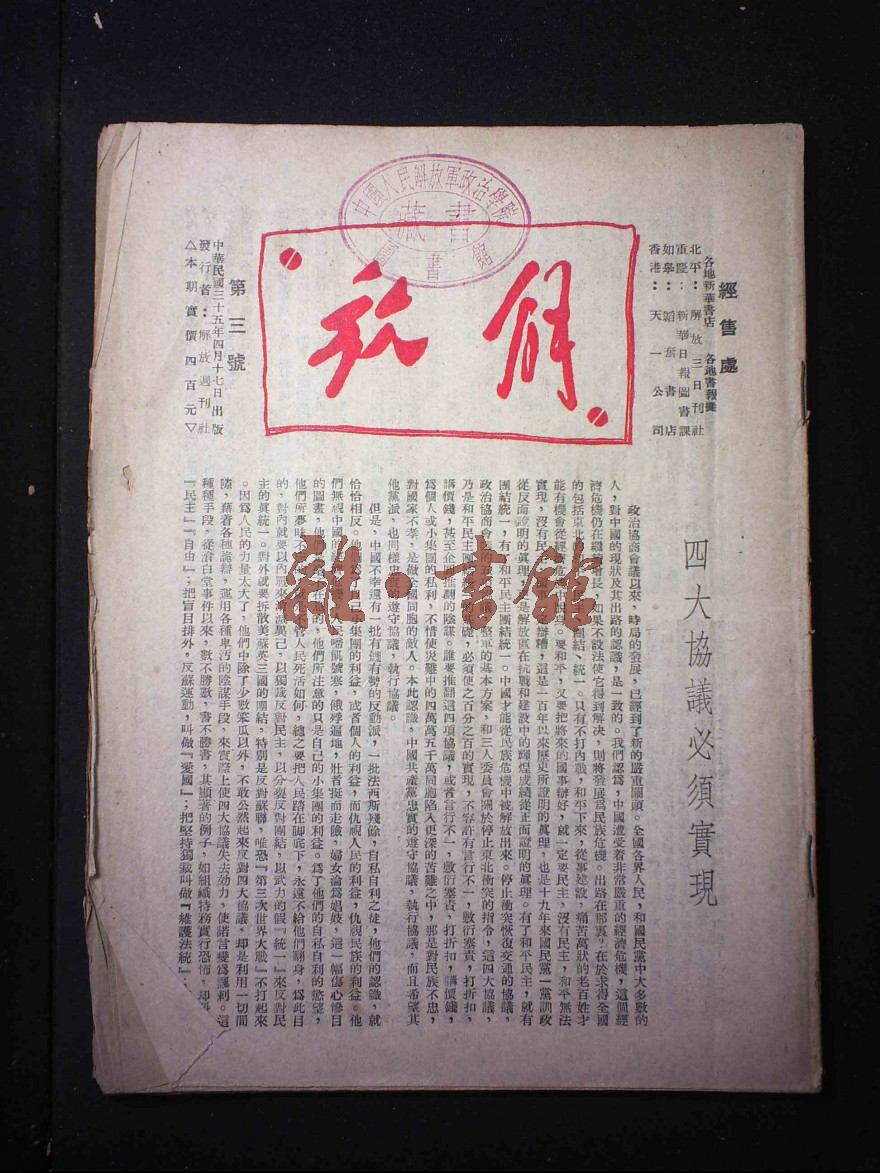 中國人民解放軍政治學院
藏書
書館
解放
經售處
各地新華書店 各地書報攤
北平：解放三日刊社
重慶：新華日報圖書課
如皋：韜奮書店
香港：天一公司
第三號
中華民國三十五年四月十七日出版
發行者：解放週刊社
△本期實價四百元▽
四大協議必須實現
政治協商會議以來，時局的發展，已經到了新的嚴重關頭。全國各界人民，和國民黨中大多數的
人，對中國的現狀及其出路的認識，是一致的。我們認爲，中國遭受着非常嚴重的經濟危機，這個經
濟危機仍在繼續增長，如果不設法使它得到解決，則將發展爲民族危機。出路在那裏？在於求得全國
的包括東北 團結、統一。只有不打內戰，和平下來，從事建設，痛苦萬狀的老百姓才
能有機會從 要和平，又要把將來的國事辦好，就一定要民主，沒有民主，和平無法
實現，沒有民 辦糟，這是一百年以來歷史所證明的眞理，也是十九年來國民黨一黨訓政
從反面證明的眞理 是解放區在抗戰和建設中的輝煌成績從正面證明的眞理。有了和平民主，就有
團結統一，有了和平民主團結統一。中國才能從民族危機中被解放出來。停止衝突恢復交通的協議，
政治協商會 整軍的基本方案，和三人委員會關於停止東北衝突的指令，這四大協議，
乃是和平民主團 基礎，必須使之百分之百的實現，不容許有言行不一，敷衍塞責，打折扣，
講價錢，甚至企 推翻的陰謀。誰要推翻這四項協議，或者言行不一，敷衍塞責，打折扣，講價錢，
爲個人或小集團的私利，不惜使災難中的四萬萬五千萬同胞陷入更深的苦難之中，那是對民族不忠，
對國家不孝，是做全國同胞的敵人。本此認識，中國共產黨忠實的遵守協議，執行協議，而且希望其
他黨派，也同樣忠實的遵守協議，執行協議。
但是，中國不幸還有一批有權有勢的反動派，一批法西斯殘餘，自私自利之徒，他們的認識，就
恰恰相反。他們爲了自己小集團的利益，或者個人的利益，而仇視人民的利益，仇視民族的利益。他
們無視中國的 人民啼飢號寒，餓殍遍地，壯者挺而走險，婦女淪爲娼妓，這一幅傷心慘目
的圖畫，他 的，他們所注意的只是自己的小集團的利益。爲了他們的自私自利的慾望，
他們所夢昧 不管人民死活如何，總之要把人民踏在脚底下，永遠不給他們翻身，爲此目
的，對內就要以內戰來消滅異己，以獨裁反對民主，以分裂反對團結，以武力的假『統一』來反對民
主的眞統一。對外就要拆散美蘇英三國的團結，特別是反對蘇聯，唯恐『第三次世界大戰』不打起來
。因爲人民的力量太大了，他們中除了少數笨瓜以外，不敢公然起來反對四大協議，却是利用一切間
隙，藉着各種詭辯，運用各種卑汚的陰謀手段，來實際上使四大協議失去効力，使諾言變爲諷刺。這
種種手段，從滄白堂事件以來，數不勝數，書不勝書，其顯著的例子，如組織特務實行恐怖，却
『民主』『自由』；把盲目排外，反蘇運動，叫做『愛國』；把堅持獨裁叫做『維護法統』；
雜·書館